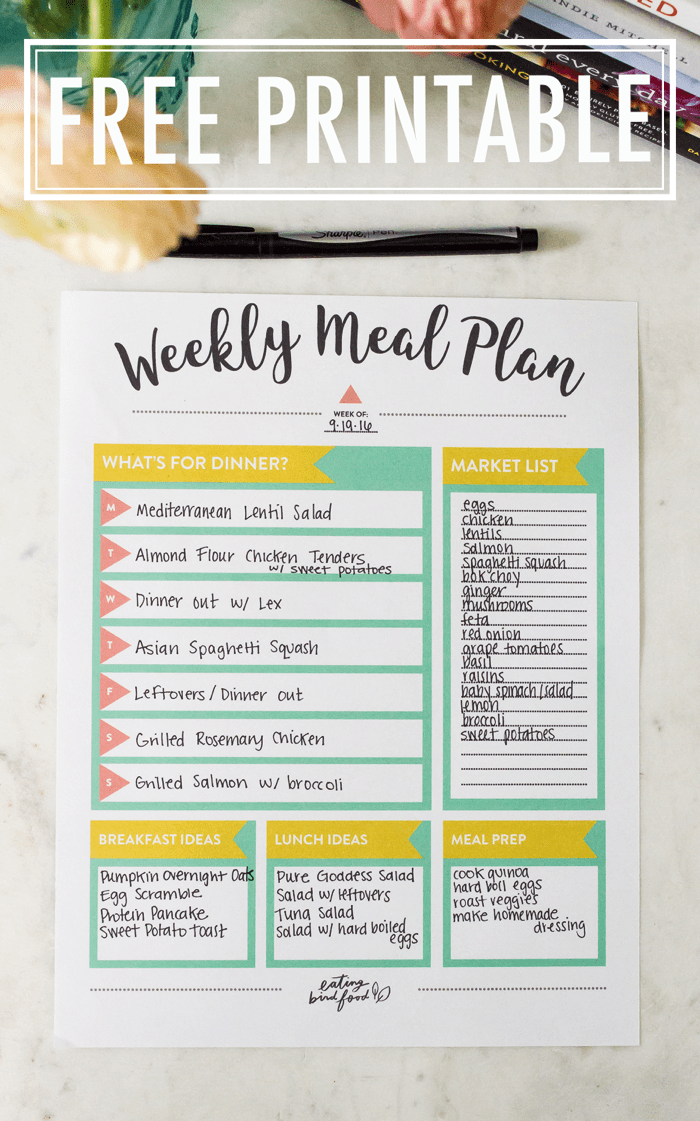 ANDIE MITCHELL
FREE PRINTABLE
Sharpie. Pen
Weekly Meal Plan
WEEK OF:
9.19.16
WHAT'S FOR DINNER?
M Mediterranean Lentil Salad
T Almond Flour Chicken Tenders
w/ sweet potatoes
W Dinner out w/ Lex
T Asian Spaghetti Squash
F Leftovers / Dinner out
S Grilled Rosemary Chicken
S Grilled Salmon w/ broccoli
MARKET LIST
eggs
chicken
lentils
salmon
spaghetti squash
bok choy
ginger
mushrooms
feta
red onion
grape tomatoes
basil
raisins
baby spinach/salad
lemon
broccoli
sweet potatoes
BREAKFAST IDEAS
Pumpkin Overnight Oats
Egg Scramble
Protein Pancake
Sweet Potato Toast
LUNCH IDEAS
Pure Goddess Salad
Salad w/ leftovers
Tuna Salad
Salad w/ hard boiled
eggs
MEAL PREP
cook quinoa
hard boil eggs
roast veggies
make homemade
dressing
eating
bird food